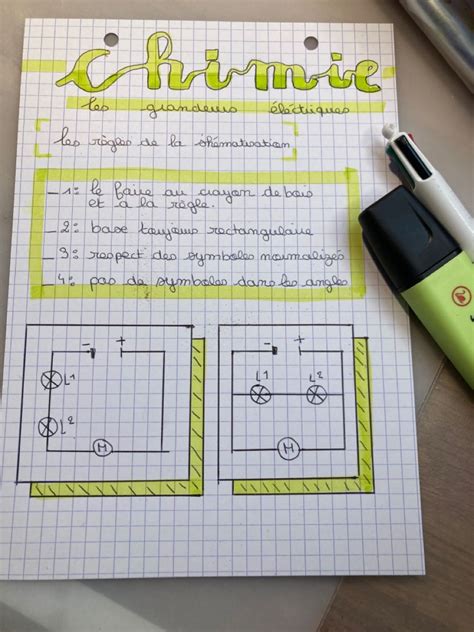 chimie
les grandeurs éléctriques
les règles de la shématisation
_ 1: le faire au crayon de bois
et à la règle.
_ 2: base toujours rectangulaire
_ 3: respect des symboles normalizés
_ 4: pas de symboles dans les angles
- +
L1
L2
M
- +
L1 L2
M